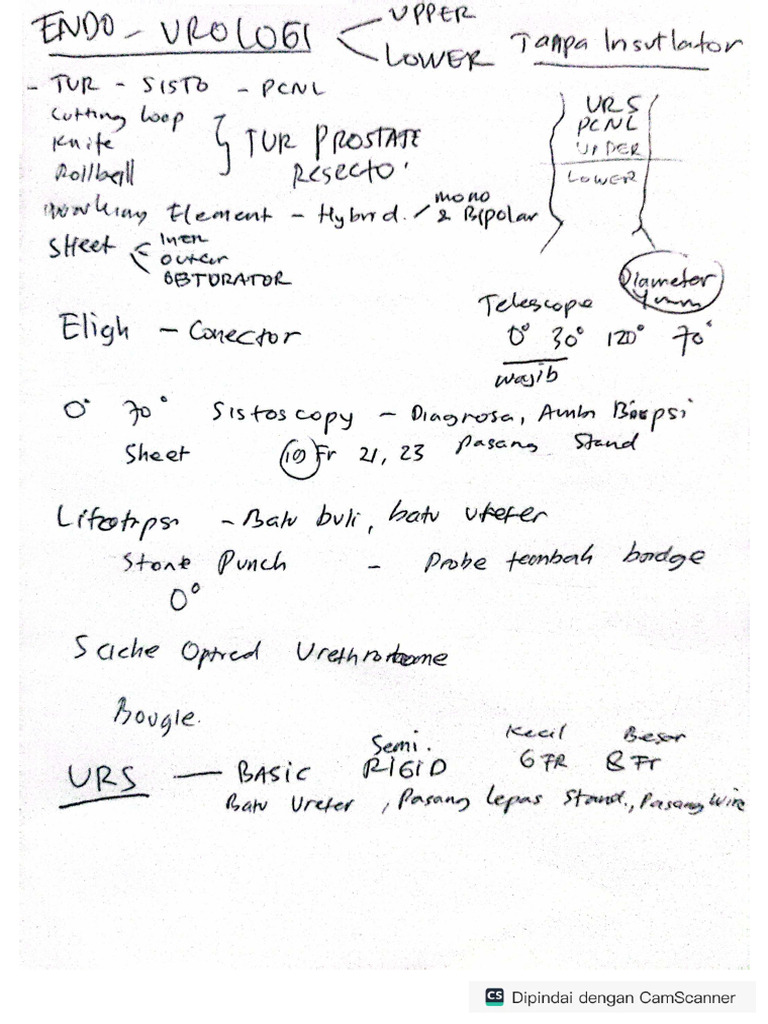 ENDO - UROLOGI
UPPER
LOWER
Tanpa Insutlator
- TUR - SISTO - PCNL
Cutting loop
Knife
Rollball
TUR PROSTATE
Resecto
URS
PCNL
UPPER
LOWER
Working Element - Hybrid. / mono & Bipolar
Sheet
Inen
Outer
OBTURATOR
Diameter
4mm
Telescope
0° 30° 120° 70°
wajib
Eligh - Conector
0° 70° Sistoscopy - Diagnosa, Ambn Biopsi
Sheet 19 Fr 21, 23 pasang Stand
Litotrpsi - Batu buli, batu ureter
Stone Punch - Probe tembah
0°
Sache Optical Urethrotome
Bougie.
URS - BASIC Semi. RIGID Kecil 6 FR Besar 8 Fr
Batu Ureter, Pasang lepas Stand., Pasang wire
CS Dipindai dengan CamScanner